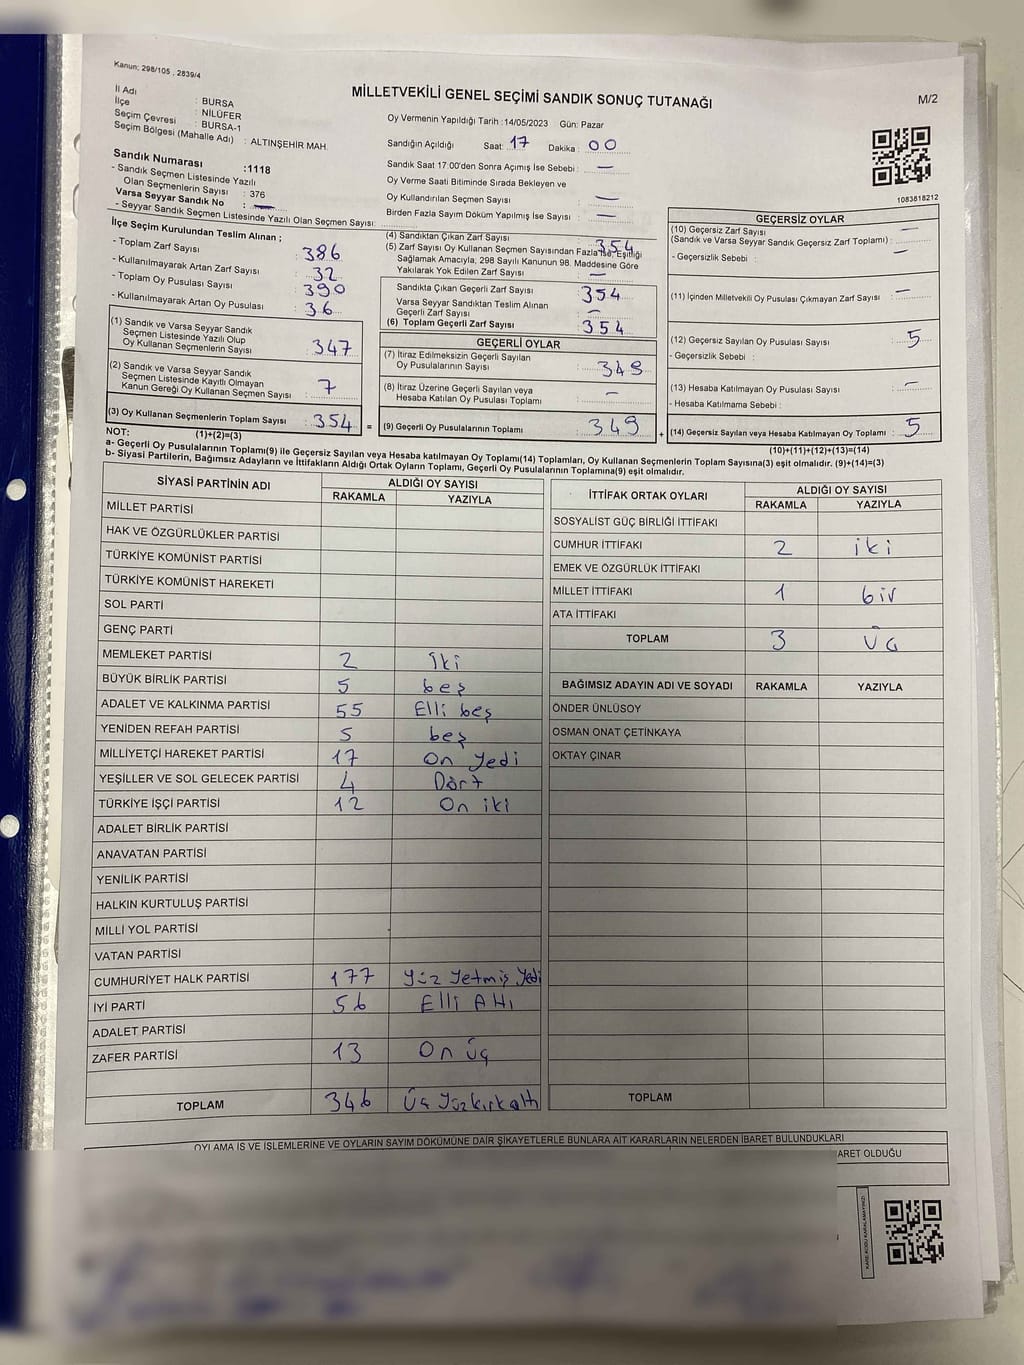 Kanun: 298/105 , 2839/4
MİLLETVEKİLİ GENEL SEÇİMİ SANDIK SONUÇ TUTANAĞI
M/2
İl Adı : BURSA
İlçe : NİLÜFER
Seçim Çevresi : BURSA-1
Seçim Bölgesi (Mahalle Adı) : ALTINŞEHİR MAH.
Sandık Numarası :1118
- Sandık Seçmen Listesinde Yazılı
Olan Seçmenlerin Sayısı : 376
Varsa Seyyar Sandık No : —
- Seyyar Sandık Seçmen Listesinde Yazılı Olan Seçmen Sayısı:
Oy Vermenin Yapıldığı Tarih :14/05/2023 Gün: Pazar
Sandığın Açıldığı Saat: 17 Dakika : 00
Sandık Saat 17:00'den Sonra Açımış İse Sebebi : —
Oy Verme Saati Bitiminde Sırada Bekleyen ve
Oy Kullandırılan Seçmen Sayısı : —
Birden Fazla Sayım Döküm Yapılmış İse Sayısı : —
1083818212
İlçe Seçim Kurulundan Teslim Alınan ;
- Toplam Zarf Sayısı : 386
- Kullanılmayarak Artan Zarf Sayısı : 32
- Toplam Oy Pusulası Sayısı : 390
- Kullanılmayarak Artan Oy Pusulası : 36
(1) Sandık ve Varsa Seyyar Sandık
Seçmen Listesinde Yazılı Olup
Oy Kullanan Seçmenlerin Sayısı : 347
(2) Sandık ve Varsa Seyyar Sandık
Seçmen Listesinde Kayıtlı Olmayan
Kanun Gereği Oy Kullanan Seçmen Sayısı : 7
(3) Oy Kullanan Seçmenlerin Toplam Sayısı : 354 =
(4) Sandıktan Çıkan Zarf Sayısı : 354
(5) Zarf Sayısı Oy Kullanan Seçmen Sayısından Fazla İse, Eşitliği
Sağlamak Amacıyla, 298 Sayılı Kanunun 98. Maddesine Göre
Yakılarak Yok Edilen Zarf Sayısı : —
Sandıkta Çıkan Geçerli Zarf Sayısı : 354
Varsa Seyyar Sandıktan Teslim Alınan
Geçerli Zarf Sayısı : —
(6) Toplam Geçerli Zarf Sayısı : 354
GEÇERLİ OYLAR
(7) İtiraz Edilmeksizin Geçerli Sayılan
Oy Pusulalarının Sayısı : 349
(8) İtiraz Üzerine Geçerli Sayılan veya
Hesaba Katılan Oy Pusulası Toplamı : —
(9) Geçerli Oy Pusulalarının Toplamı : 349 +
GEÇERSİZ OYLAR
(10) Geçersiz Zarf Sayısı : —
(Sandık ve Varsa Seyyar Sandık Geçersiz Zarf Toplamı) :
- Geçersizlik Sebebi : —
(11) İçinden Milletvekili Oy Pusulası Çıkmayan Zarf Sayısı : —
(12) Geçersiz Sayılan Oy Pusulası Sayısı : 5
- Geçersizlik Sebebi :
(13) Hesaba Katılmayan Oy Pusulası Sayısı : —
- Hesaba Katılmama Sebebi :
(14) Geçersiz Sayılan veya Hesaba Katılmayan Oy Toplamı : 5
NOT: (1)+(2)=(3) (10)+(11)+(12)+(13)=(14)
a- Geçerli Oy Pusulalarının Toplamı(9) ile Geçersiz Sayılan veya Hesaba katılmayan Oy Toplamı(14) Toplamları, Oy Kullanan Seçmenlerin Toplam Sayısına(3) eşit olmalıdır. (9)+(14)=(3)
b- Siyasi Partilerin, Bağımsız Adayların ve İttifakların Aldığı Ortak Oyların Toplamı, Geçerli Oy Pusulalarının Toplamına(9) eşit olmalıdır.
SİYASİ PARTİNİN ADI ALDIĞI OY SAYISI
RAKAMLA YAZIYLA
MİLLET PARTİSİ
HAK VE ÖZGÜRLÜKLER PARTİSİ
TÜRKİYE KOMÜNİST PARTİSİ
TÜRKİYE KOMÜNİST HAREKETİ
SOL PARTİ
GENÇ PARTİ
MEMLEKET PARTİSİ 2 iki
BÜYÜK BİRLİK PARTİSİ 5 beş
ADALET VE KALKINMA PARTİSİ 55 Elli beş
YENİDEN REFAH PARTİSİ 5 beş
MİLLİYETÇİ HAREKET PARTİSİ 17 On Yedi
YEŞİLLER VE SOL GELECEK PARTİSİ 4 Dört
TÜRKİYE İŞÇİ PARTİSİ 12 On iki
ADALET BİRLİK PARTİSİ
ANAVATAN PARTİSİ
YENİLİK PARTİSİ
HALKIN KURTULUŞ PARTİSİ
MİLLİ YOL PARTİSİ
VATAN PARTİSİ
CUMHURİYET HALK PARTİSİ 177 Yüz Yetmiş Yedi
İYİ PARTİ 56 Elli Altı
ADALET PARTİSİ
ZAFER PARTİSİ 13 On üç
TOPLAM 346 Üç Yüz kırk altı
İTTİFAK ORTAK OYLARI ALDIĞI OY SAYISI
RAKAMLA YAZIYLA
SOSYALİST GÜÇ BİRLİĞİ İTTİFAKI
CUMHUR İTTİFAKI 2 iki
EMEK VE ÖZGÜRLÜK İTTİFAKI
MİLLET İTTİFAKI 1 bir
ATA İTTİFAKI
TOPLAM 3 Üç
BAĞIMSIZ ADAYIN ADI VE SOYADI RAKAMLA YAZIYLA
ÖNDER ÜNLÜSOY
OSMAN ONAT ÇETİNKAYA
OKTAY ÇINAR
TOPLAM
OYLAMA İŞ VE İŞLEMLERİNE VE OYLARIN SAYIM DÖKÜMÜNE DAİR ŞİKAYETLERLE BUNLARA AİT KARARLARIN NELERDEN İBARET BULUNDUKLARI
ARET OLDUĞU